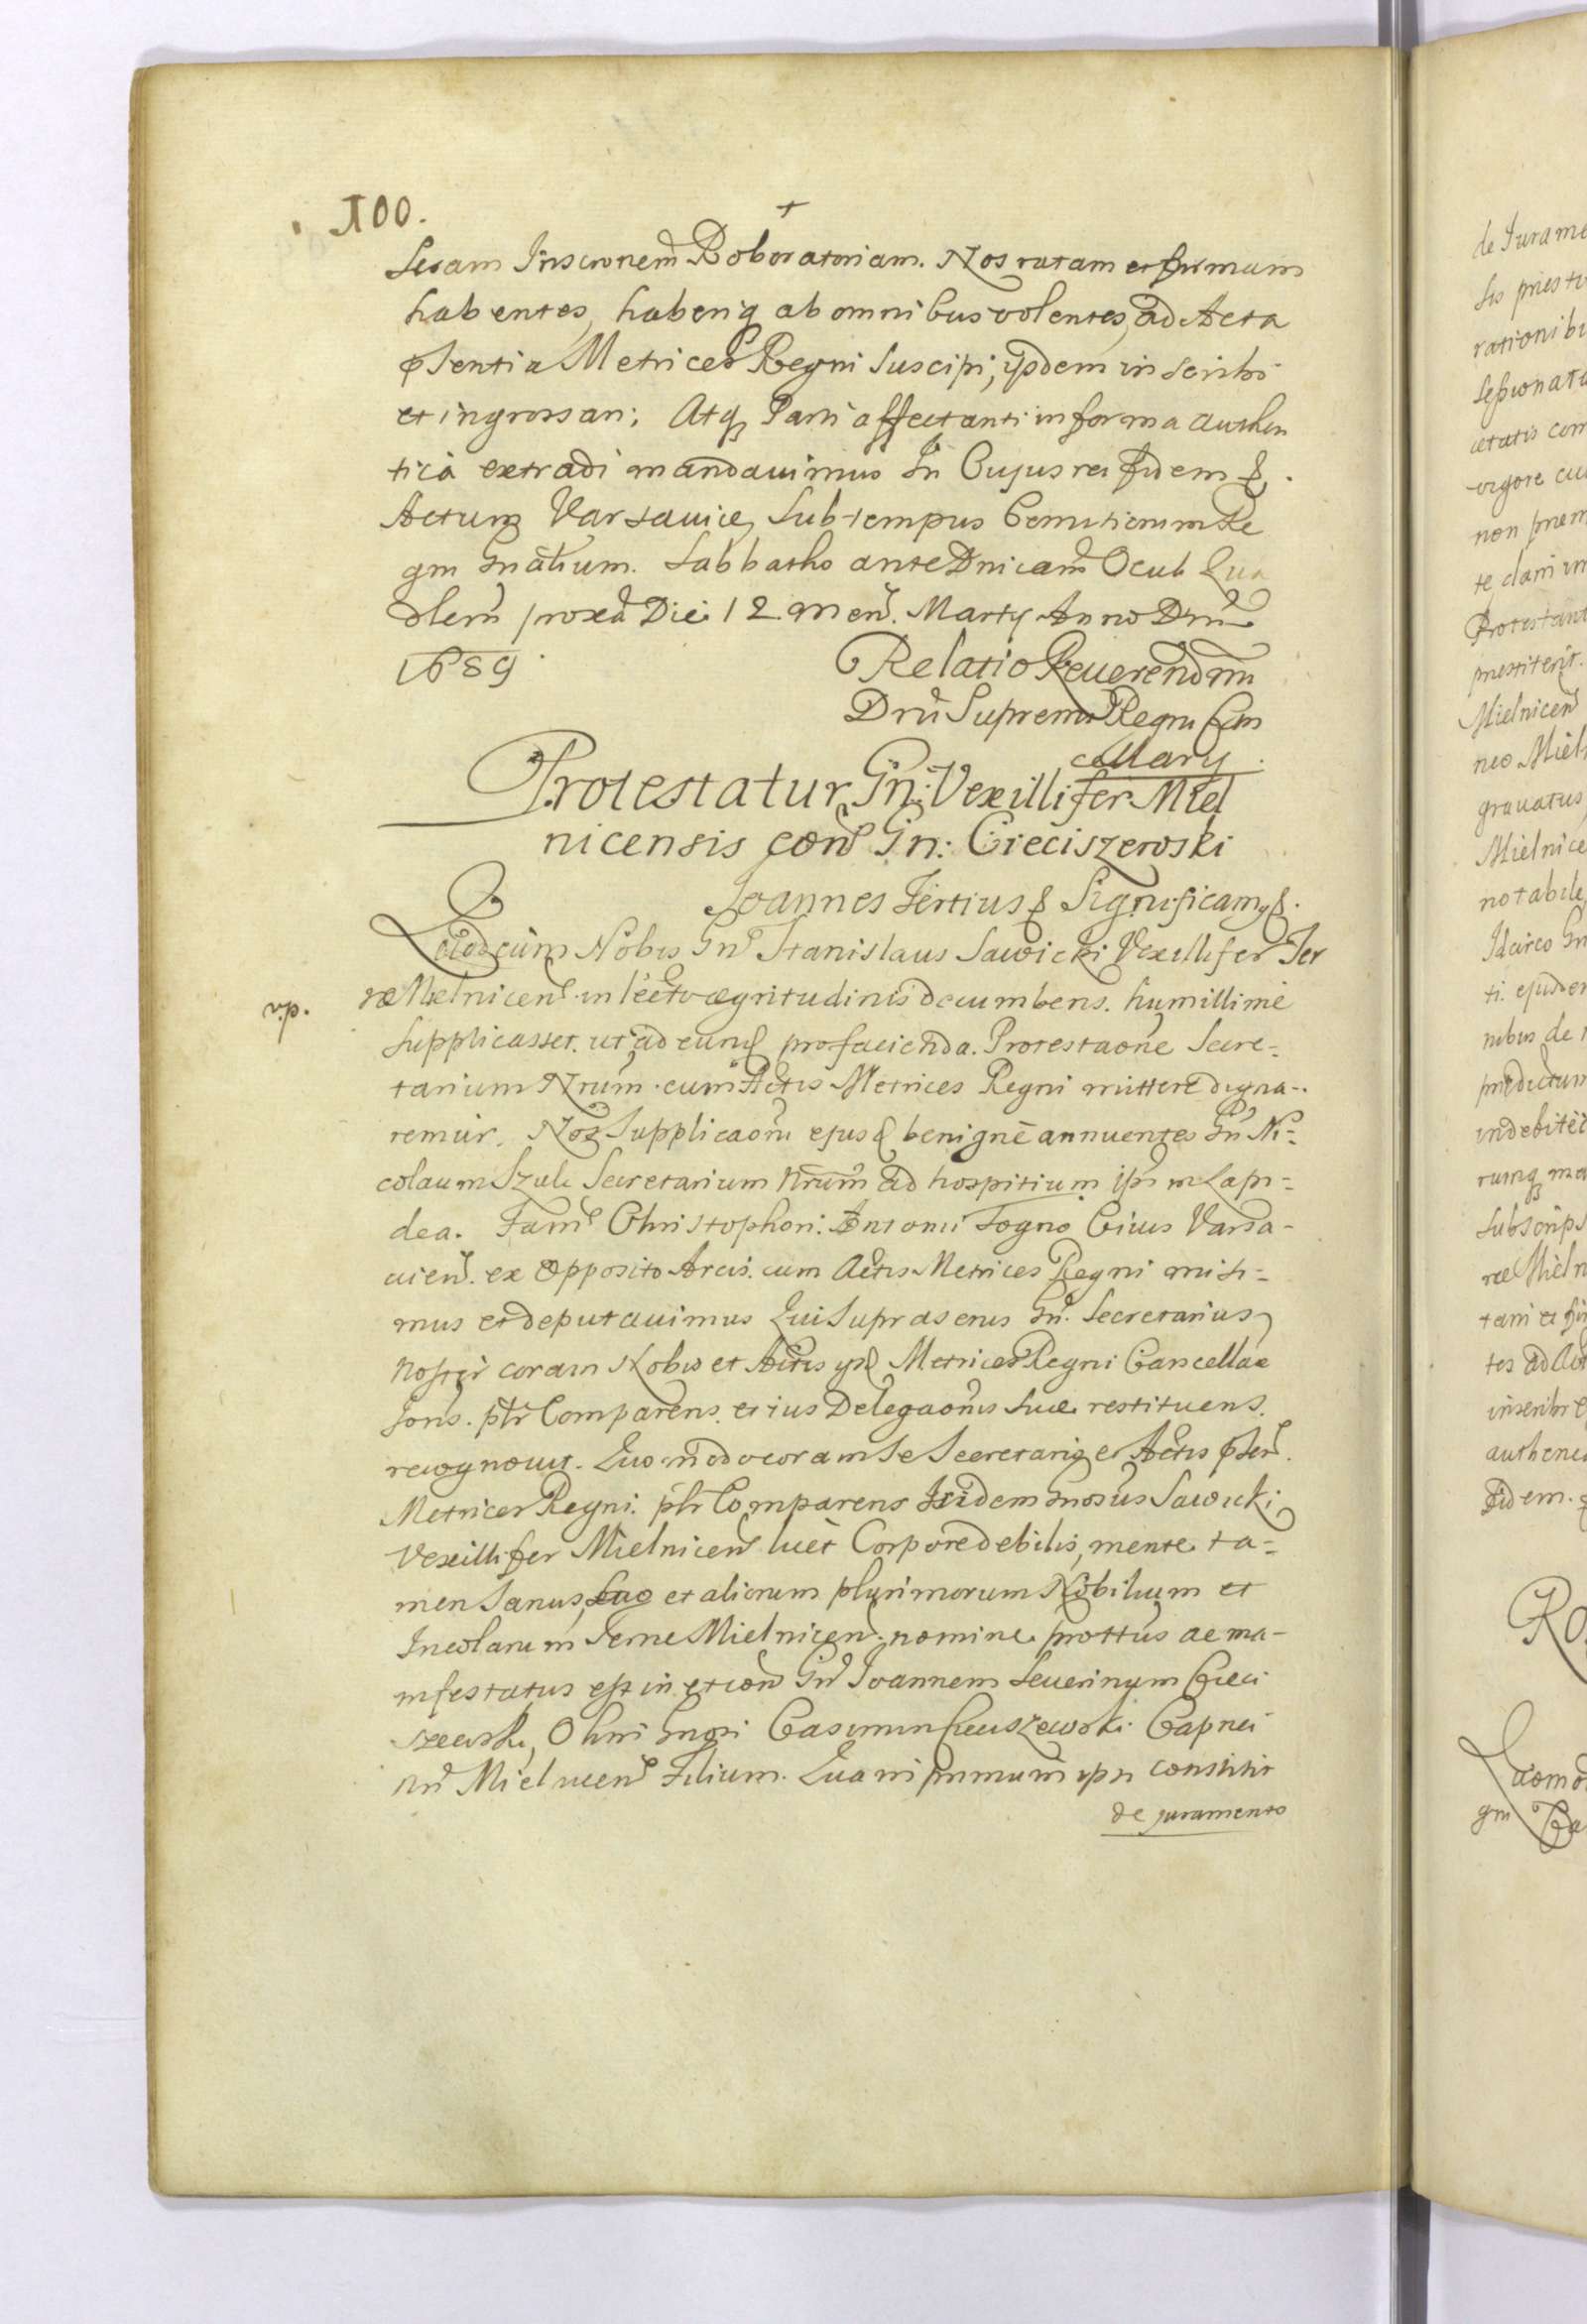 100.
+
Seram Inscronem Roboratoriam. Nos ratam et firmam
habentes, haberiq ab omnibus volentes, ad Acta
pSentia Metrices Regni Suscipi, ijsdem inscribi
et ingrossari; Atq Parti affectanti in forma authen
tica extradi mandauimus In Cujus rei fidem &.
Actum Varsauiæ, Sub tempus Comitiorum Re
gni Gnalium. Sabbatho ante Dnicam Oculi Qua
dlem proxa Die 12 Men. Martij Anno Dni
1689.
Relatio Reuerendmi
Dni Supremi Regni Can
cellarij.
Protestatur Gn: Vexillifer Miel
nicensis con Gn: Cieciszewski
Joannes Tertius & Significamy &.
Quod cum Nobis Gn Stanislaus Sawicki Vexillifer Ter
v.p.
ræ Mielnicen. in lecto ægritudinis decumbens. humillime
Supplicasset. ut ad eund pro facienda. Protestaone Secre=
tarium Nrum. cum Actis Metrices Regni mittere digna-
remur. Nos Supplicaoni ejusd benigne annuentes Gn Ni=
colaum Szulc Secretarium Nrum ad hospitium ipsi in Lapi=
dea. Fam Christophori. Antonii Togno Ciuis Varsa-
uien. ex Opposito Arcis. cum Actis Metrices Regni misi=
mus et deputauimus Qui Suprascrius Gn. Secretarius
noster coram Nobis et Actis ijsd Metrices Regni Cancellae
Joris. pltr Comparens. et ius Delegaonis Suæ restituens.
recognouit. Quomodo coram Se Secretario et Actis pSen.
Metrices Regni. pltr Comparens Ibidem Gnosus Sawicki
Vexillifer Mielnicen licet Corpore debilis, mente ta=
men Sanus, Suo et aliorum plurimorum Nobilium et
Incolarum Terræ Mielnicen. nomine prottus ac ma-
nifestatus est in et con Gn Joannem Seuerinum Cieci
szewski, Olim Gnosi Casimiri Cieciszewski Capnei
Mielnicen Filium. Quam primum ipsi constitit
de juramento